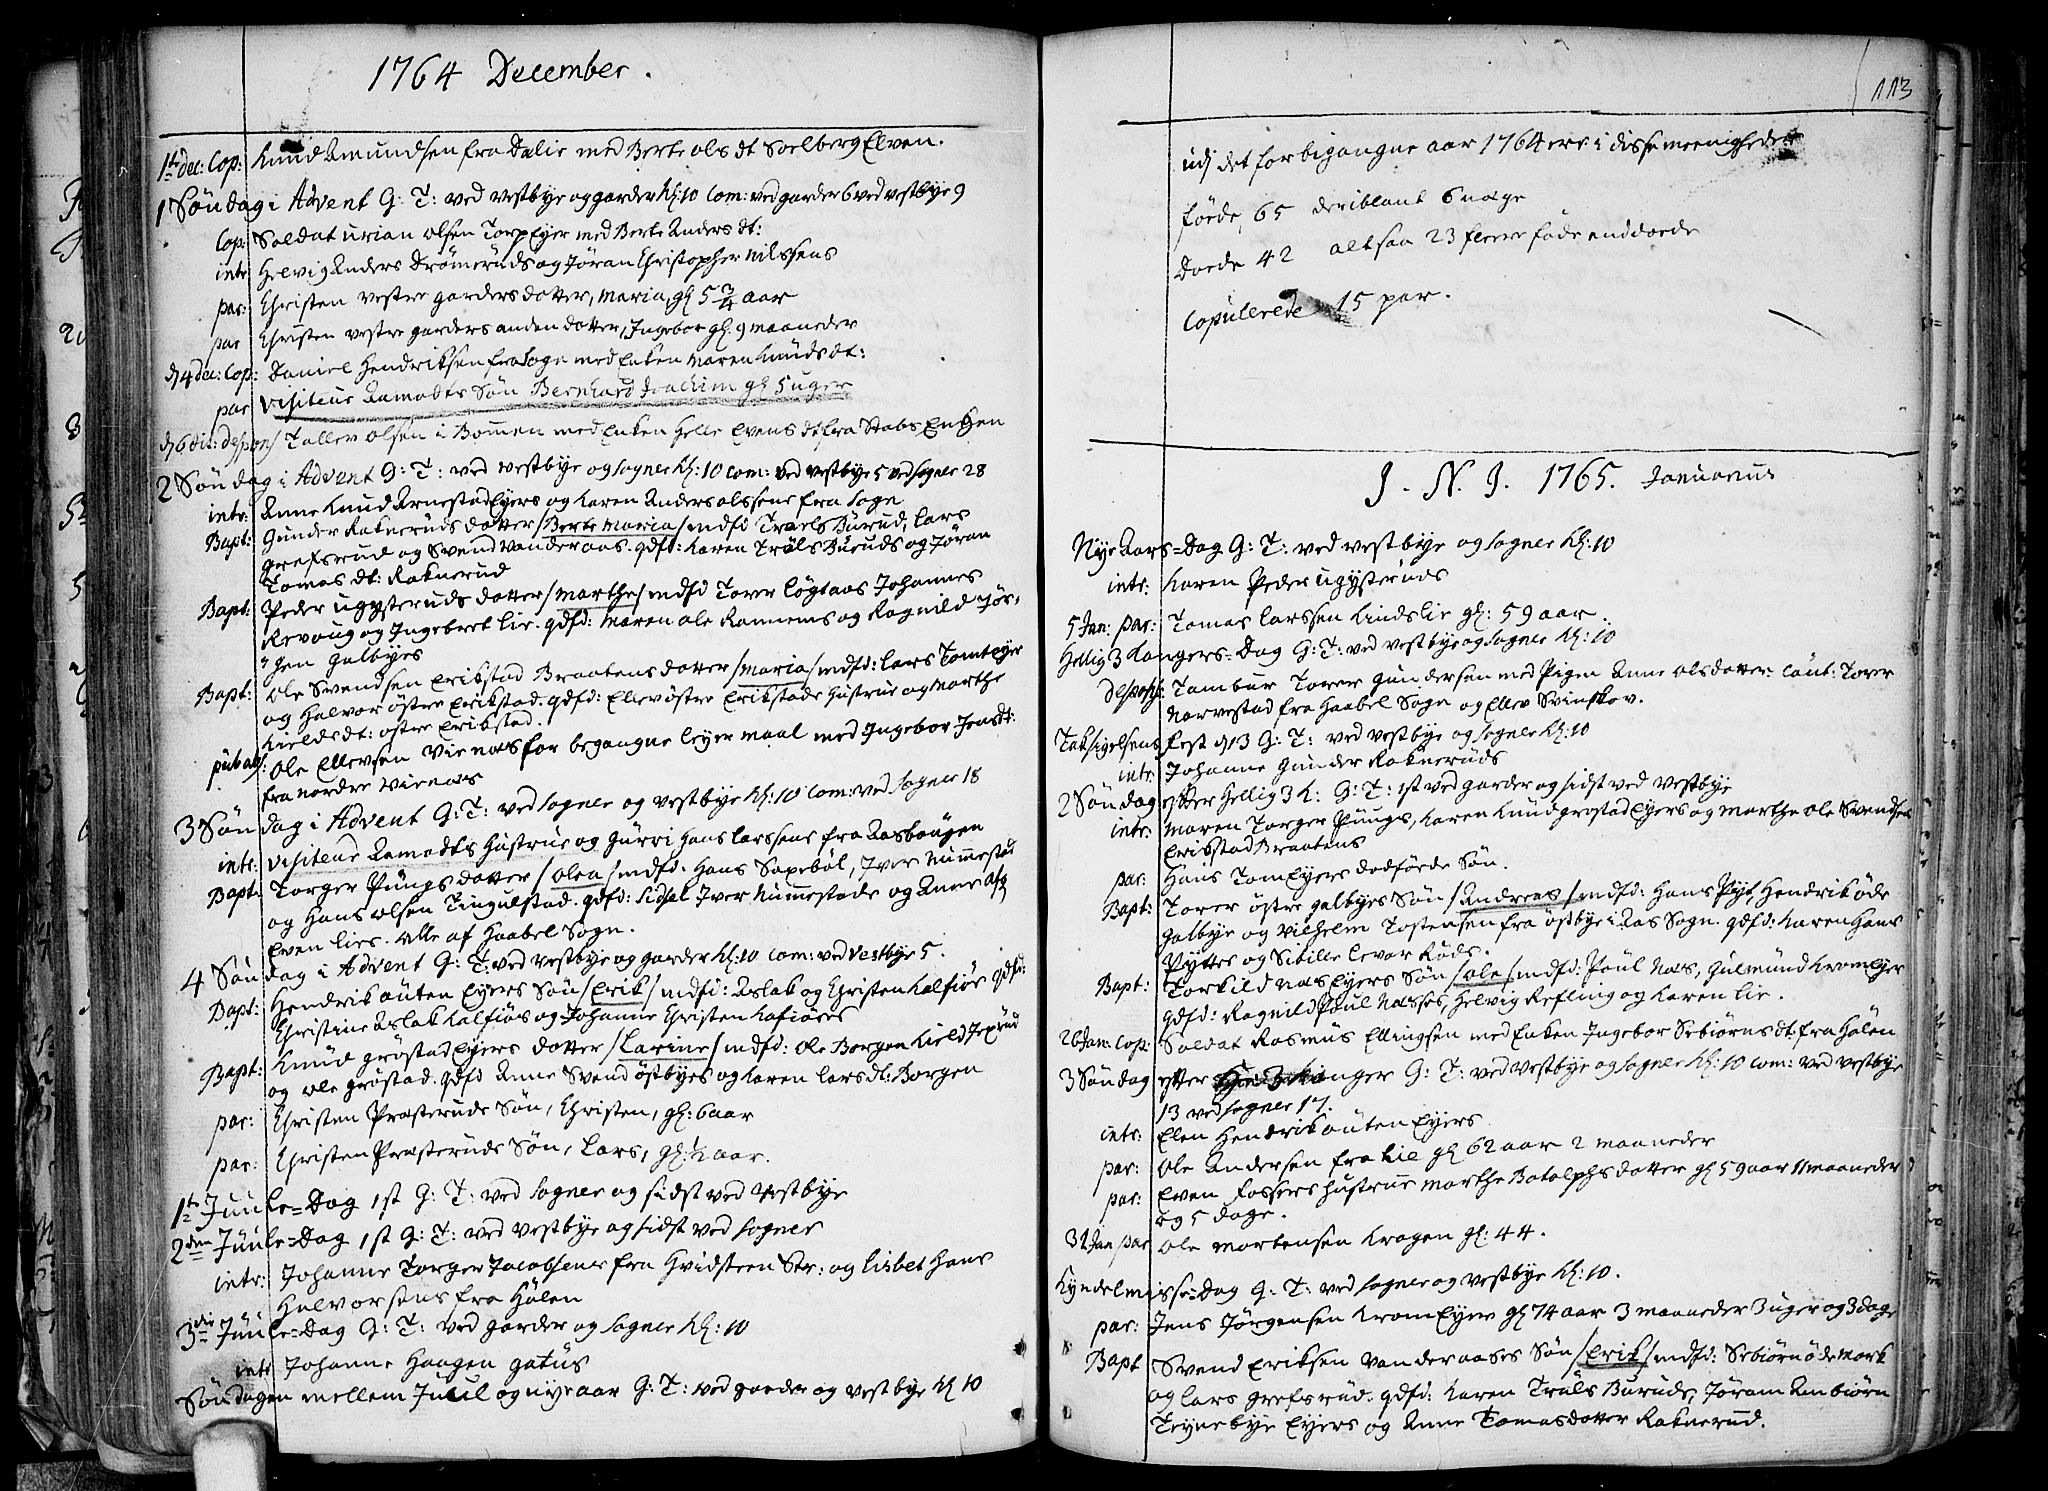 1764 December.
1ste dec: Cop: Knud Amundsen fra Dalie med Berte ols dt Soelberg Elven.
1 Søndag i Advent G: T: ved vestbye og garder Kl: 10 Com: ved garder 6 ved vestbye 9
Cop: Soldat urian olsen Torp Eyer med Berte Anders dt:
intr: Helvig Anders Drømeruds og Jøran Christopher Nilssens
par: Christen vestre garders dotter, Maria, gl 5 3/4 aar
par Christen vestre garders anden dotter, Ingebor gl. 9 maaneder
d 4 dec: Cop: Daniel Hendriksen fra Sogn med Enken Maren Knuds dt:
par Visiteur Ramodts Søn Bernhard Joachim gl 5 uger
d 6 dec: despons Tollev olsen i Bommen med Enken Helle Evens dt fra Stabs Enken
2 Søndag i Advent G: T: ved vestbye og Sogner Kl: 10 Com: ved vestbye 5 ved Sogner 28
intr: Anne Knud Arnestad Eyers og Karen Anders olssens fra Sogn
Bapt: Gunder Rakneruds dotter / Berte Maria / mdfd Troels Burud, Lars
grefsrud og Svend Vanderaas. qdfd: Karen Tröls Buruds og Jøran
Tomas dt: Raknerud
Bapt: Peder ugysteruds dotter / Marthe / mdfd Torer Løgtaas Johannes
Revoug og Ingebret Lie. qdfd: Maren ole Ramnems og Ragnild Jør-
gen Galbyes
Bapt: Ole Svendsen Erikstad Braatens dotter / Maria / mdfd: Lars Tomteyer
og Halvor østre Erikstad. qdfd: Ellev østre Erikstads Hustrue og Marthe
Kields dt: østre Erikstad.
pub abs: Ole Ellevsen Viernæs for begangne leyermaal med Ingebor Jens dt:
fra nordre Viernæs
3 Søndag i Advent G: T: ved Sogner og vestbye Kl: 10 Com: ved Sogner 18
intr: Visiteur Ramodts Hustrue og Gurri Hans Larssens fra Rasbougen
Bapt: Torger Pungs dotter / olea / mdfd: Hans Saxebøl, Iver Nummestad
og Hans olsen Tingulstad. qdfd: Sidsel Iver Nummestads og Anne
Even Lies. Alle af Haabel Sogn.
4 Søndag i Advent G: T: ved vestbye og garder Kl: 10 Com: ved vestbye 5.
Bapt: Hendrik outen Eyers Søn / Erik / mdfd: Aslak og Christen Kalfiøs qdfd:
Christine Aslak Kalfiøs og Johanne Christen Kafiøses
Bapt: Knud grøstad Eyers dotter / Larine / mdfd: Ole Borgen Kield Jexrud
og ole grøstad. qdfd Anne Svend østbyes og Karen Lars dt: Borgen
par: Christen Præsteruds Søn, Christen, gl: 6 aar
par: Christen Præsteruds Søn, Lars, gl: 1/2 aar.
1ste Juule=Dag 1st G: T: ved Sogner og sidst ved vestbye
2den Juule=Dag 1st G: T: ved vestbye og sidst ved Sogner
intr: Johanne Torger Jacobsens fra Hvidsteen Str: og Lisbet Hans
Halvorsens fra Hølen
3die Juule=Dag G: T: ved garder og Sogner Kl: 10
intr Johanne Haagen gatus
Søndagen mellem Juul og nyeaar G: T: ved garder og vestbye Kl 10
113
udj det forbigangne aar 1764 ere i disse meenigheder
føede, 65 deriblant 6 uægte
Døede 42 altsaa 23 fleere føde end døede
Copulerede 15 par.
J. N. J. 1765. Januarius
Nye Aars=Dag G: T: ved vestbye og Sogner Kl: 10
intr: Karen Peder ugysteruds
5 Jan: par: Tomas Larssen Kindslie gl: 59 aar.
Hellig 3 Kongers=Dag G: T: ved vestbye og Sogner Kl: 10
despons: Tambur Torer Gundersen med Pigen Anne olsdotter. Caut: Torer
Narvestad fra Haabel Sogn og Ellev Svinskov.
Taksigelsens fest d 13 G: T: ved vestbye og Sogner Kl: 10
intr: Johanne Gunder Rakneruds
2 Søndag efter Hellig 3 K: G: T: 1st ved garder og sidst ved vestbye
intr: Maren Torger Pungs, Karen Knud grøstad Eyers og Marthe ole Svendsen
Erikstad Braatens
par: Hans TomtEyers dødføede Søn.
Bapt: Torer østre galbyes Søn / Andreas / mdfd: Hans Pyt, Hendrik øde
Galbye og Vilhelm Tostensen fra østbye i Aas Sogn. qdfd: Karen Hans
Pyttes og Sibille Levor Røds.
Bapt: Torkild næs Eyers Søn / ole / mdfd: Poul Næs, Gulmund Krom Eyer
qdfd: Ragnild Poul Næsses, Helvig Refling og Karen Lie.
26 Jan: Cop: Soldat Rasmus Ellingsen med Enken Ingebor Sebiørns dt: fra Hølen
3 Søndag efter H: 3 Konger G: T: ved vestbye og Sogner Kl: 10 Com: ved vestbye
13 ved Sogner 17.
intr: Elen Hendrik outen Eyers
par: Ole Andersen fra Lie gl 62 aar 2 maaneder
par: Even Fossers Hustrue Marthe Botolphs dotter gl 59 aar 11 maaneder
og 5 dage.
31 Jan par Ole Mortensen Kragen gl: 44.
Kyndelmisse=Dag G: T: ved Sogner og vestbye Kl: 10.
par: Jens Jørgensen Krom Eyer gl 74 aar 3 maaneder 3 uger og 3 dage
Bapt Svend Eriksen Vanderaases Søn / Erik / mdfd: Sebiørn ødemark
og Lars grefsrud. qdfd: Karen Tröls Buruds, Jøram Ambiørn
Teynebye Eyers og Anne Tomasdotter Raknerud.